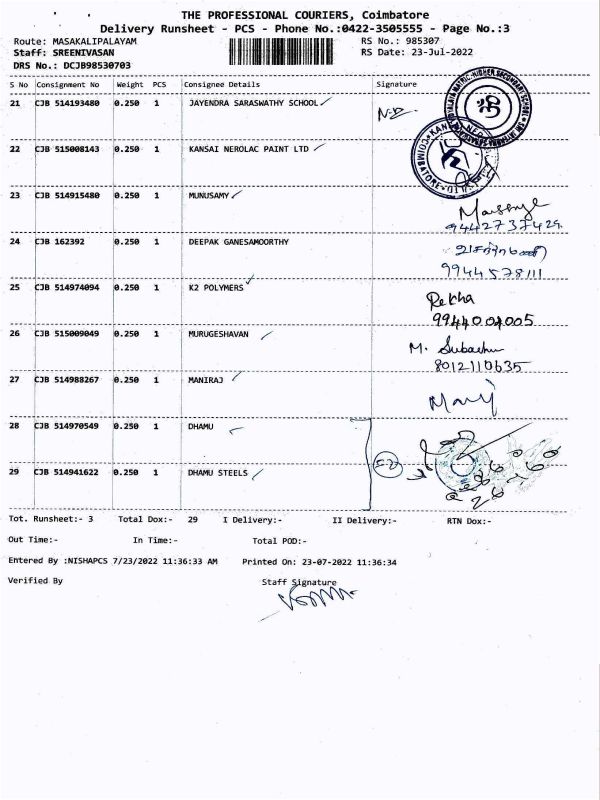 THE PROFESSIONAL COURIERS, Coimbatore
Delivery Runsheet - PCS - Phone No.:0422-3505555 - Page No.:3
Route: MASAKALIPALAYAM RS No.: 985307
Staff: SREENIVASAN RS Date: 23-Jul-2022
DRS No.: DCJB98530703
S No Consignment No Weight PCS Consignee Details Signature
21 CJB 514193480 0.250 1 JAYENDRA SARASWATHY SCHOOL
22 CJB 515008143 0.250 1 KANSAI NEROLAC PAINT LTD
23 CJB 514915480 0.250 1 MUNUSAMY
9442737429
24 CJB 162392 0.250 1 DEEPAK GANESAMOORTHY
9944578111
25 CJB 514974094 0.250 1 K2 POLYMERS
Rekha
9944004005
26 CJB 515009049 0.250 1 MURUGESHAVAN
M.
8012110635
27 CJB 514988267 0.250 1 MANIRAJ
28 CJB 514970549 0.250 1 DHAMU
29 CJB 514941622 0.250 1 DHAMU STEELS
Tot. Runsheet:- 3 Total Dox:- 29 I Delivery:- II Delivery:- RTN Dox:-
Out Time:- In Time:- Total POD:-
Entered By :NISHAPCS 7/23/2022 11:36:33 AM Printed On: 23-07-2022 11:36:34
Verified By Staff Signature